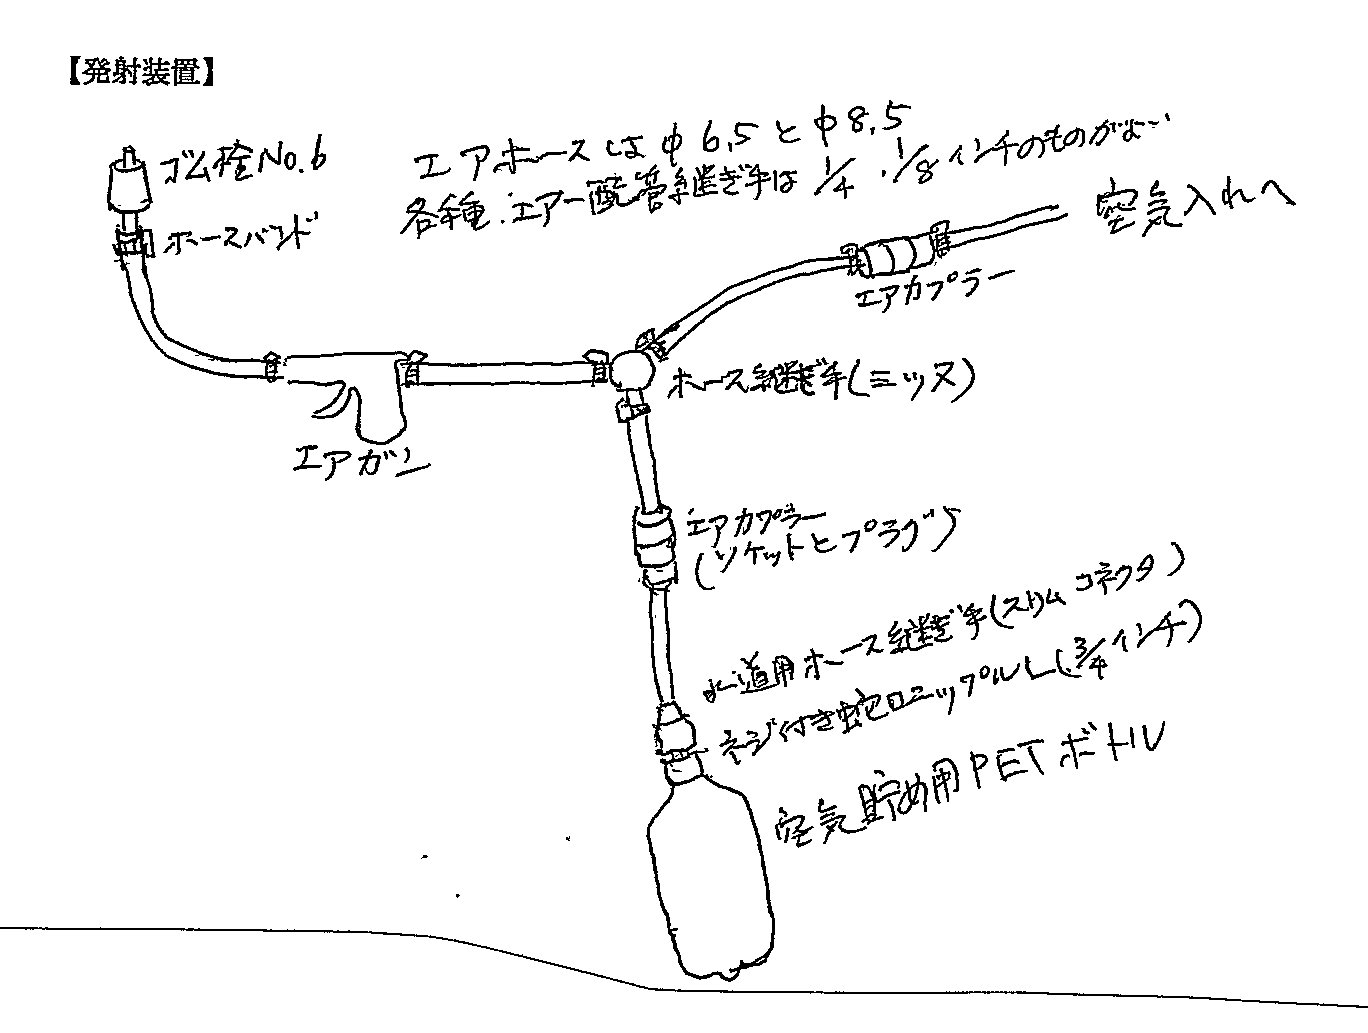 【発射装置】
ゴム栓No.6
エアホースはφ6.5とφ8.5
各種.エアー配管継ぎ手は1/4・1/8インチのものがよい
ホースバンド
空気入れへ
エアカプラー
ホース継ぎ手(ミツヌ)
エアガン
エアカプラー
(ソケットとプラグ)
水道用ホース継ぎ手(スリムコネクタ)
ネジ付き蛇口ニップルL(3/4インチ)
空気貯め用PETボトル